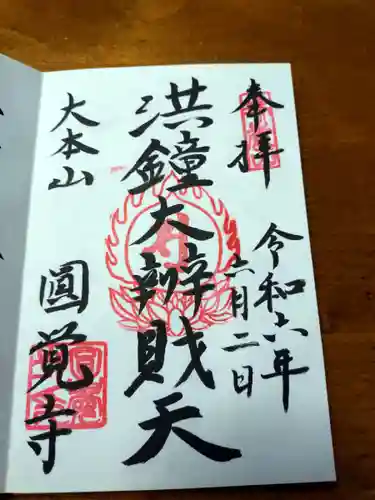 奉拝
令和六年
六月二日
洪鐘大辨財天
大本山
圓覚寺